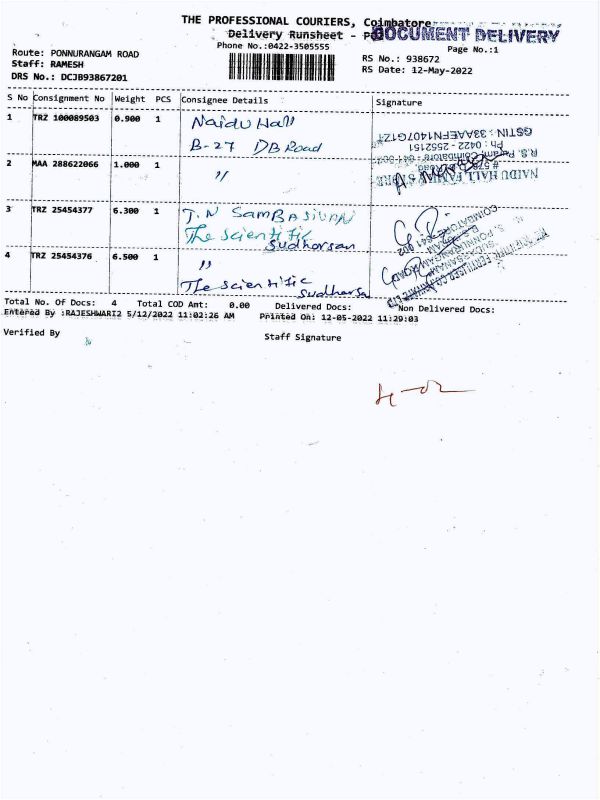 THE PROFESSIONAL COURIERS, Coimbatore
Delivery Runsheet - 
DOCUMENT DELIVERY
Phone No.:0422-3505555
Page No.:1
Route: PONNURANGAM ROAD
Staff: RAMESH
DRS No.: DCJB93867201
RS No.: 938672
RS Date: 12-May-2022
S No Consignment No Weight PCS Consignee Details Signature
1 TRZ 100089503 0.900 1 Naidu Hall
B-27 DB Road
GSTIN : 33AAEFN1407G1Z1
Ph : 0422 - 2552151
R.S. Puram, Coimbatore
NAIDU HALL FAMILY STORE
2 MAA 288622066 1.000 1 "
3 TRZ 25454377 6.300 1 T.N Sambasivan
The scientific
Sudharsan
4 TRZ 25454376 6.500 1 "
The scientific
Sudharsa
THE SCIENTIFIC FERTILISER CO PRIVATE LTD
COIMBATORE-641 002
Total No. Of Docs: 4 Total COD Amt: 0.00 Delivered Docs: Non Delivered Docs:
Entered By :RAJESHWARI2 5/12/2022 11:02:26 AM Printed On: 12-05-2022 11:29:03
Verified By Staff Signature